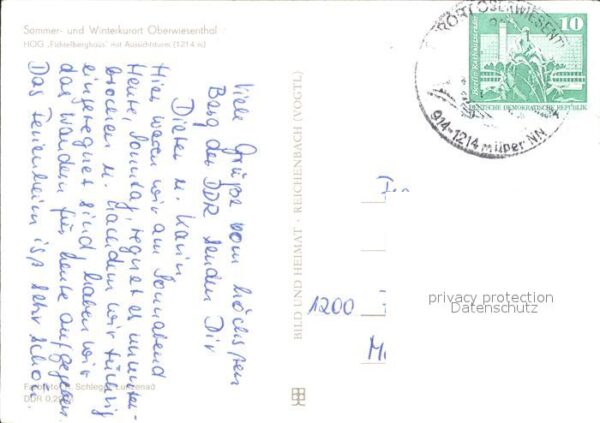 Sommer- und Winterkurort Oberwiesenthal
HOG „Fichtelberghaus" mit Aussichtsturm (1214 m)
Viele Grüße vom höchsten
Berg der DDR senden Dir
Dieter u. Karin
Hier waren wir am Sonnabend
Heute, Sonntag, regnet es ununter-
brochen u. nachdem wir tüchtig
eingeregnet sind, haben wir
das Wandern für heute aufgegeben.
Das Ferienheim ist sehr schön.
Farbfoto: Schlegel,
DDR
BILD UND HEIMAT · REICHENBACH (VOGTL)
KURORT OBERWIESENTHAL
914-1214 m über NN
10
DEUTSCHE DEMOKRATISCHE REPUBLIK
1200
privacy protection
Datenschutz